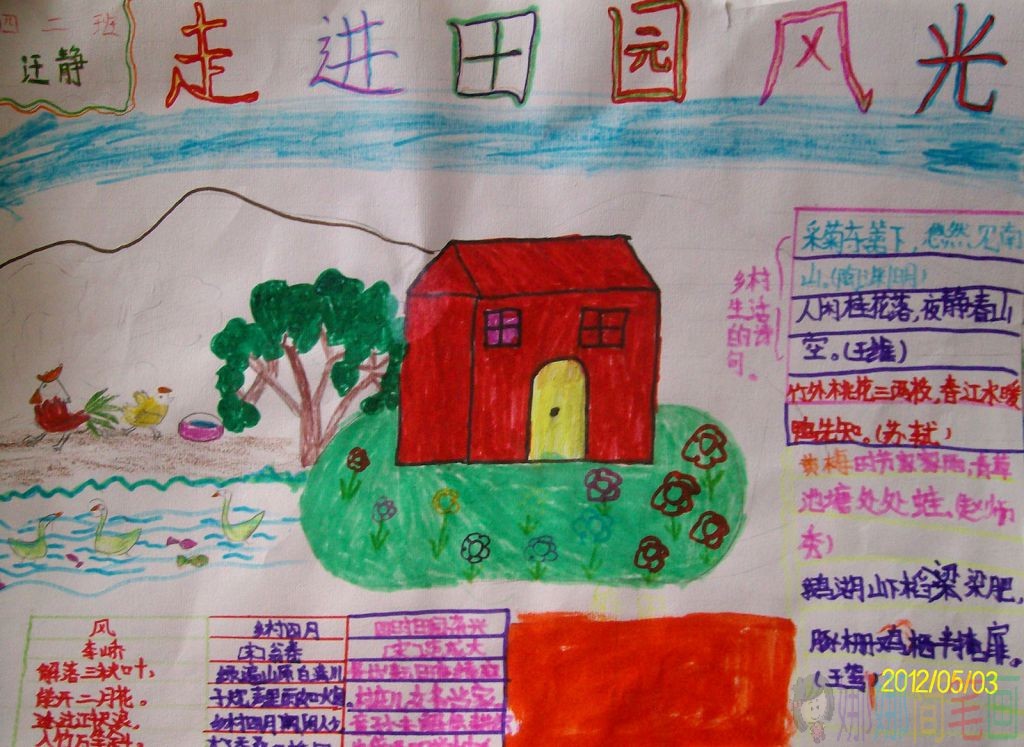 四二班
汪静
走进田园风光
乡村
生活
的诗
句。
采菊东篱下,悠然见南
山。(陶渊明)
人闲桂花落,夜静春山
空。(王维)
竹外桃花三两枝,春江水暖
鸭先知。(苏轼)
黄梅时节家家雨,青草
池塘处处蛙。(赵师
秀)
鹅湖山下稻梁梁肥,
豚栅鸡栖半掩扉。
(王驾)
风
李峤
解落三秋叶,
能开二月花。
过江
入竹万
乡村四月
[宋]翁卷
绿遍山原白满川
子规声里雨如烟。
乡村四月闲人少
四时田园杂兴
2012/05/03
娜娜简笔画